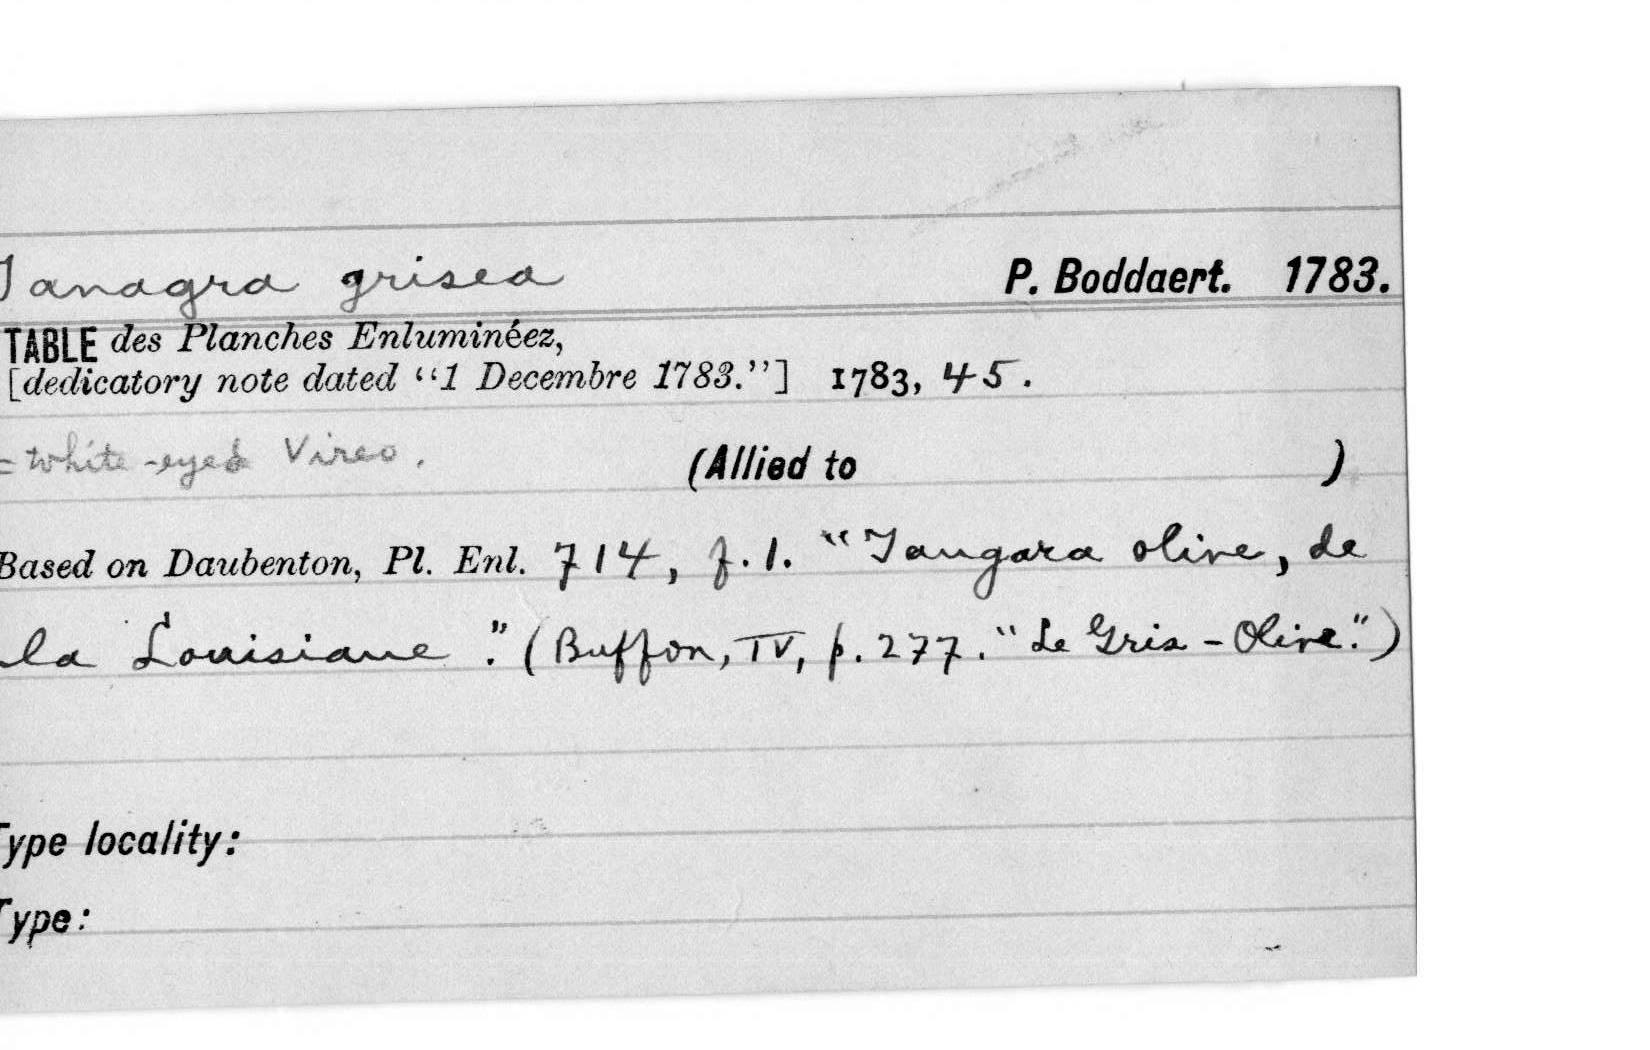 Tanagra grisea P. Boddaert. 1783.
TABLE des Planches Enluminéez,
[dedicatory note dated “1 Decembre 1783.”] 1783, 45.
= White-eyed Vireo. (Allied to )
Based on Daubenton, Pl. Enl. 714, f. 1. “Tangara olive, de
la Louisiane.” (Buffon, IV, p. 277. “Le Gris-Olive.”)
Type locality:
Type: